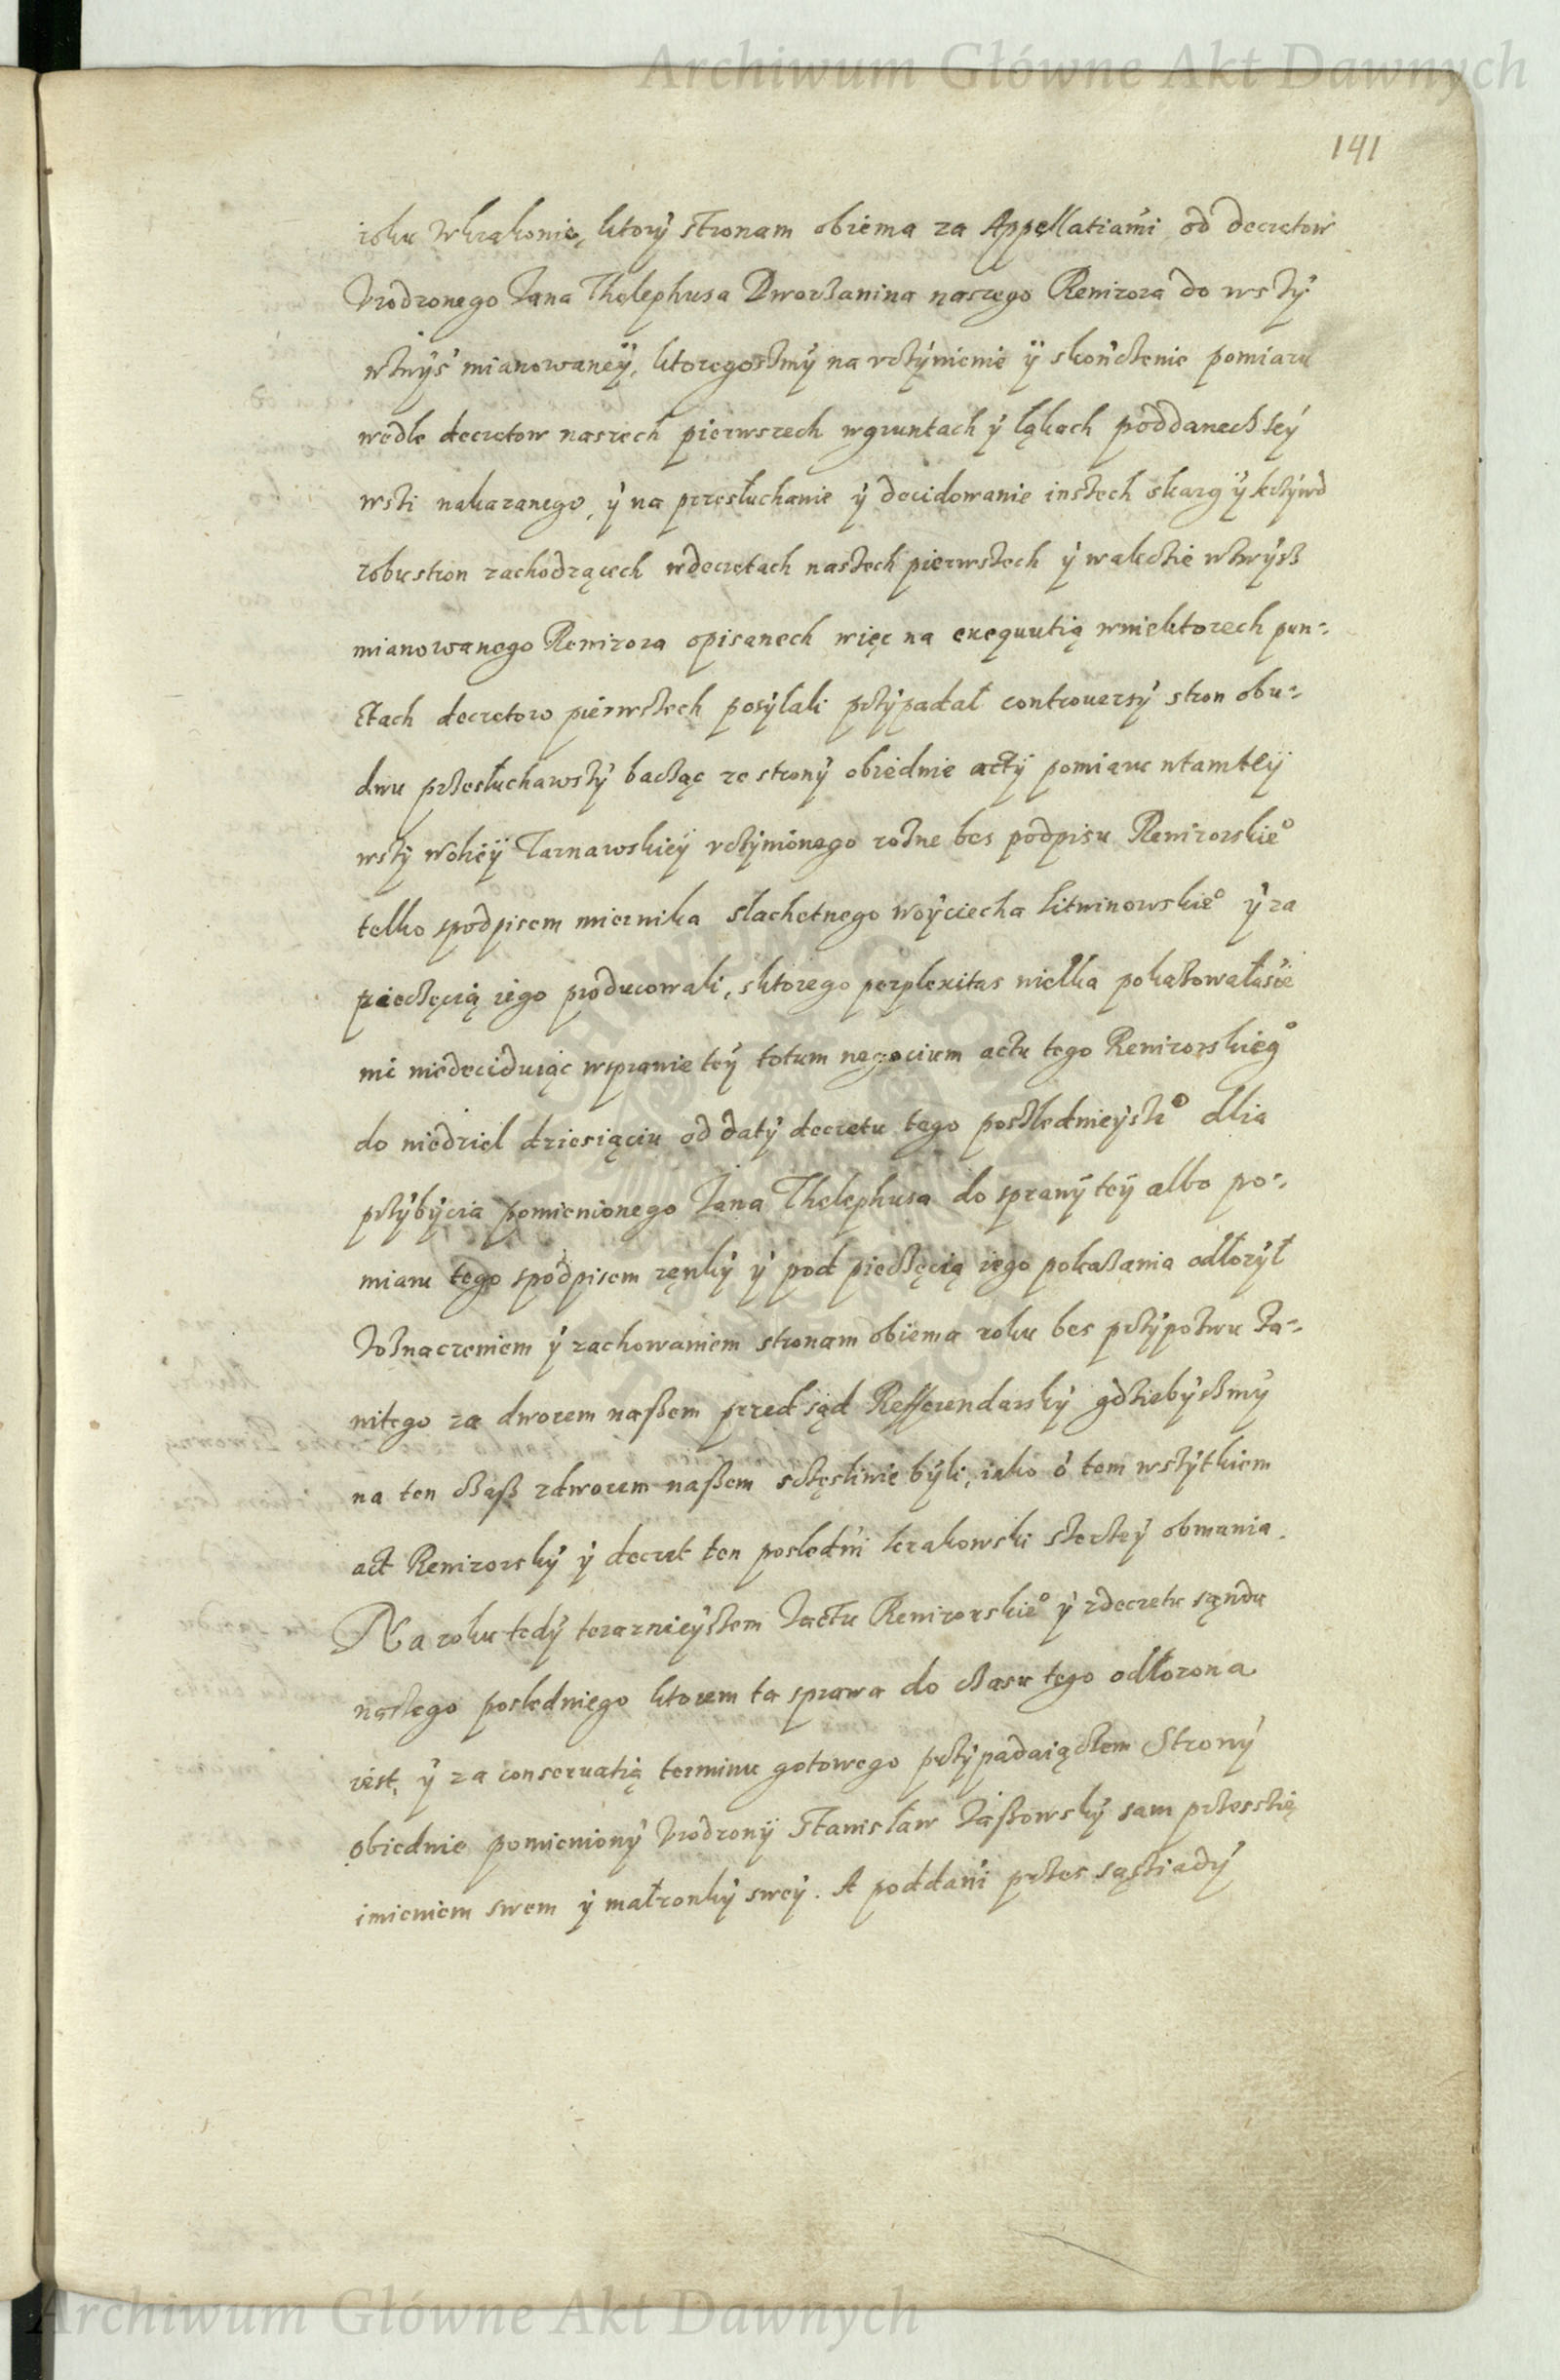 Archiwum Główne Akt Dawnych
141
roku w Krakowie, ktory stronam obiema za Appellatiami od decretow
Vrodzonego Jana Thelephusa Dworzanina naszego Rewizora do wsży
wżwyś mianowaneÿ, ktoregosmy na vcżynienie ÿ skończenie pomiaru
wedle decretow naszech pierwszech w gruntach y łąkach poddanech tey
wsżi nakazanego, y na przesłuchanie y decidowanie inszech skarg ÿ krżywd
z obu stron zachodzącech w decretach naszech pierwszech y w akcie wżwysz
mianowanego Rewizora opisanech więc na exequutią w niektorech pun=
ctach decretow pierwszech posyłali przypadał controuersy stron obu=
dwu przesłuchawszy bacząc ze strony obiednie acty pomiaru w tamteÿ
wsży Wolieÿ Tarnawskieÿ vczynionego rożne bes podpisu Rewizorskie°
telko s podpisem miernika slachetnego Woyciecha Litwinowskie° y za
pieczęcią iego producowali, s ktorego perplexitas wielka pokazowała sie
nic niedeciduiąc w sprawie tey totum negocium actu tego Rewizorskieg°
do niedziel dziesiąciu od daty decretu tego poszledniejsze° dlia
przybycia pomienionego Jana Thelephusa do sprawy tey albo po=
miaru tego s podpisem ręnky y pod pieczęcią iego pokazania odłożył
Zoznaczeniem y zachowaniem stronam obiema roku bes przypozwu za=
witego za dworem naszem przed sąd Refferendarsky gdziebyszmy
na ten czasz z dworem naszem scżęsliwie byli, iako o tem wszytkiem
act Rewizorsky y decret ten posledni krakowski szerzey obmawia.
Na roku tedy terazniejszem z actu Rewizorskie° y z decretu sąndu
naszego posledniego ktorem ta sprawa do czasu tego odłożona
iest, y za conseruatią terminu gotowego przypadaiączem Strony
obiednie pomieniony Vrodzony Stanisław Taszowsky sam przes się
imieniem swem y małżonky swey. A poddani przes sąsiady
Archiwum Główne Akt Dawnych